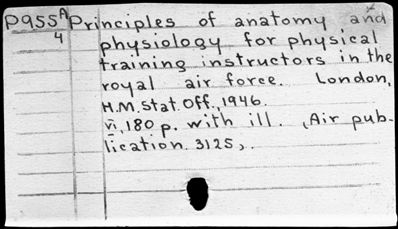 P955A Principles of anatomy and
4 physiology for physical
training instructors in the
royal air force. London,
H.M. Stat. Off., 1946.
vi, 180 p. with ill. (Air pub-
lication 3125).